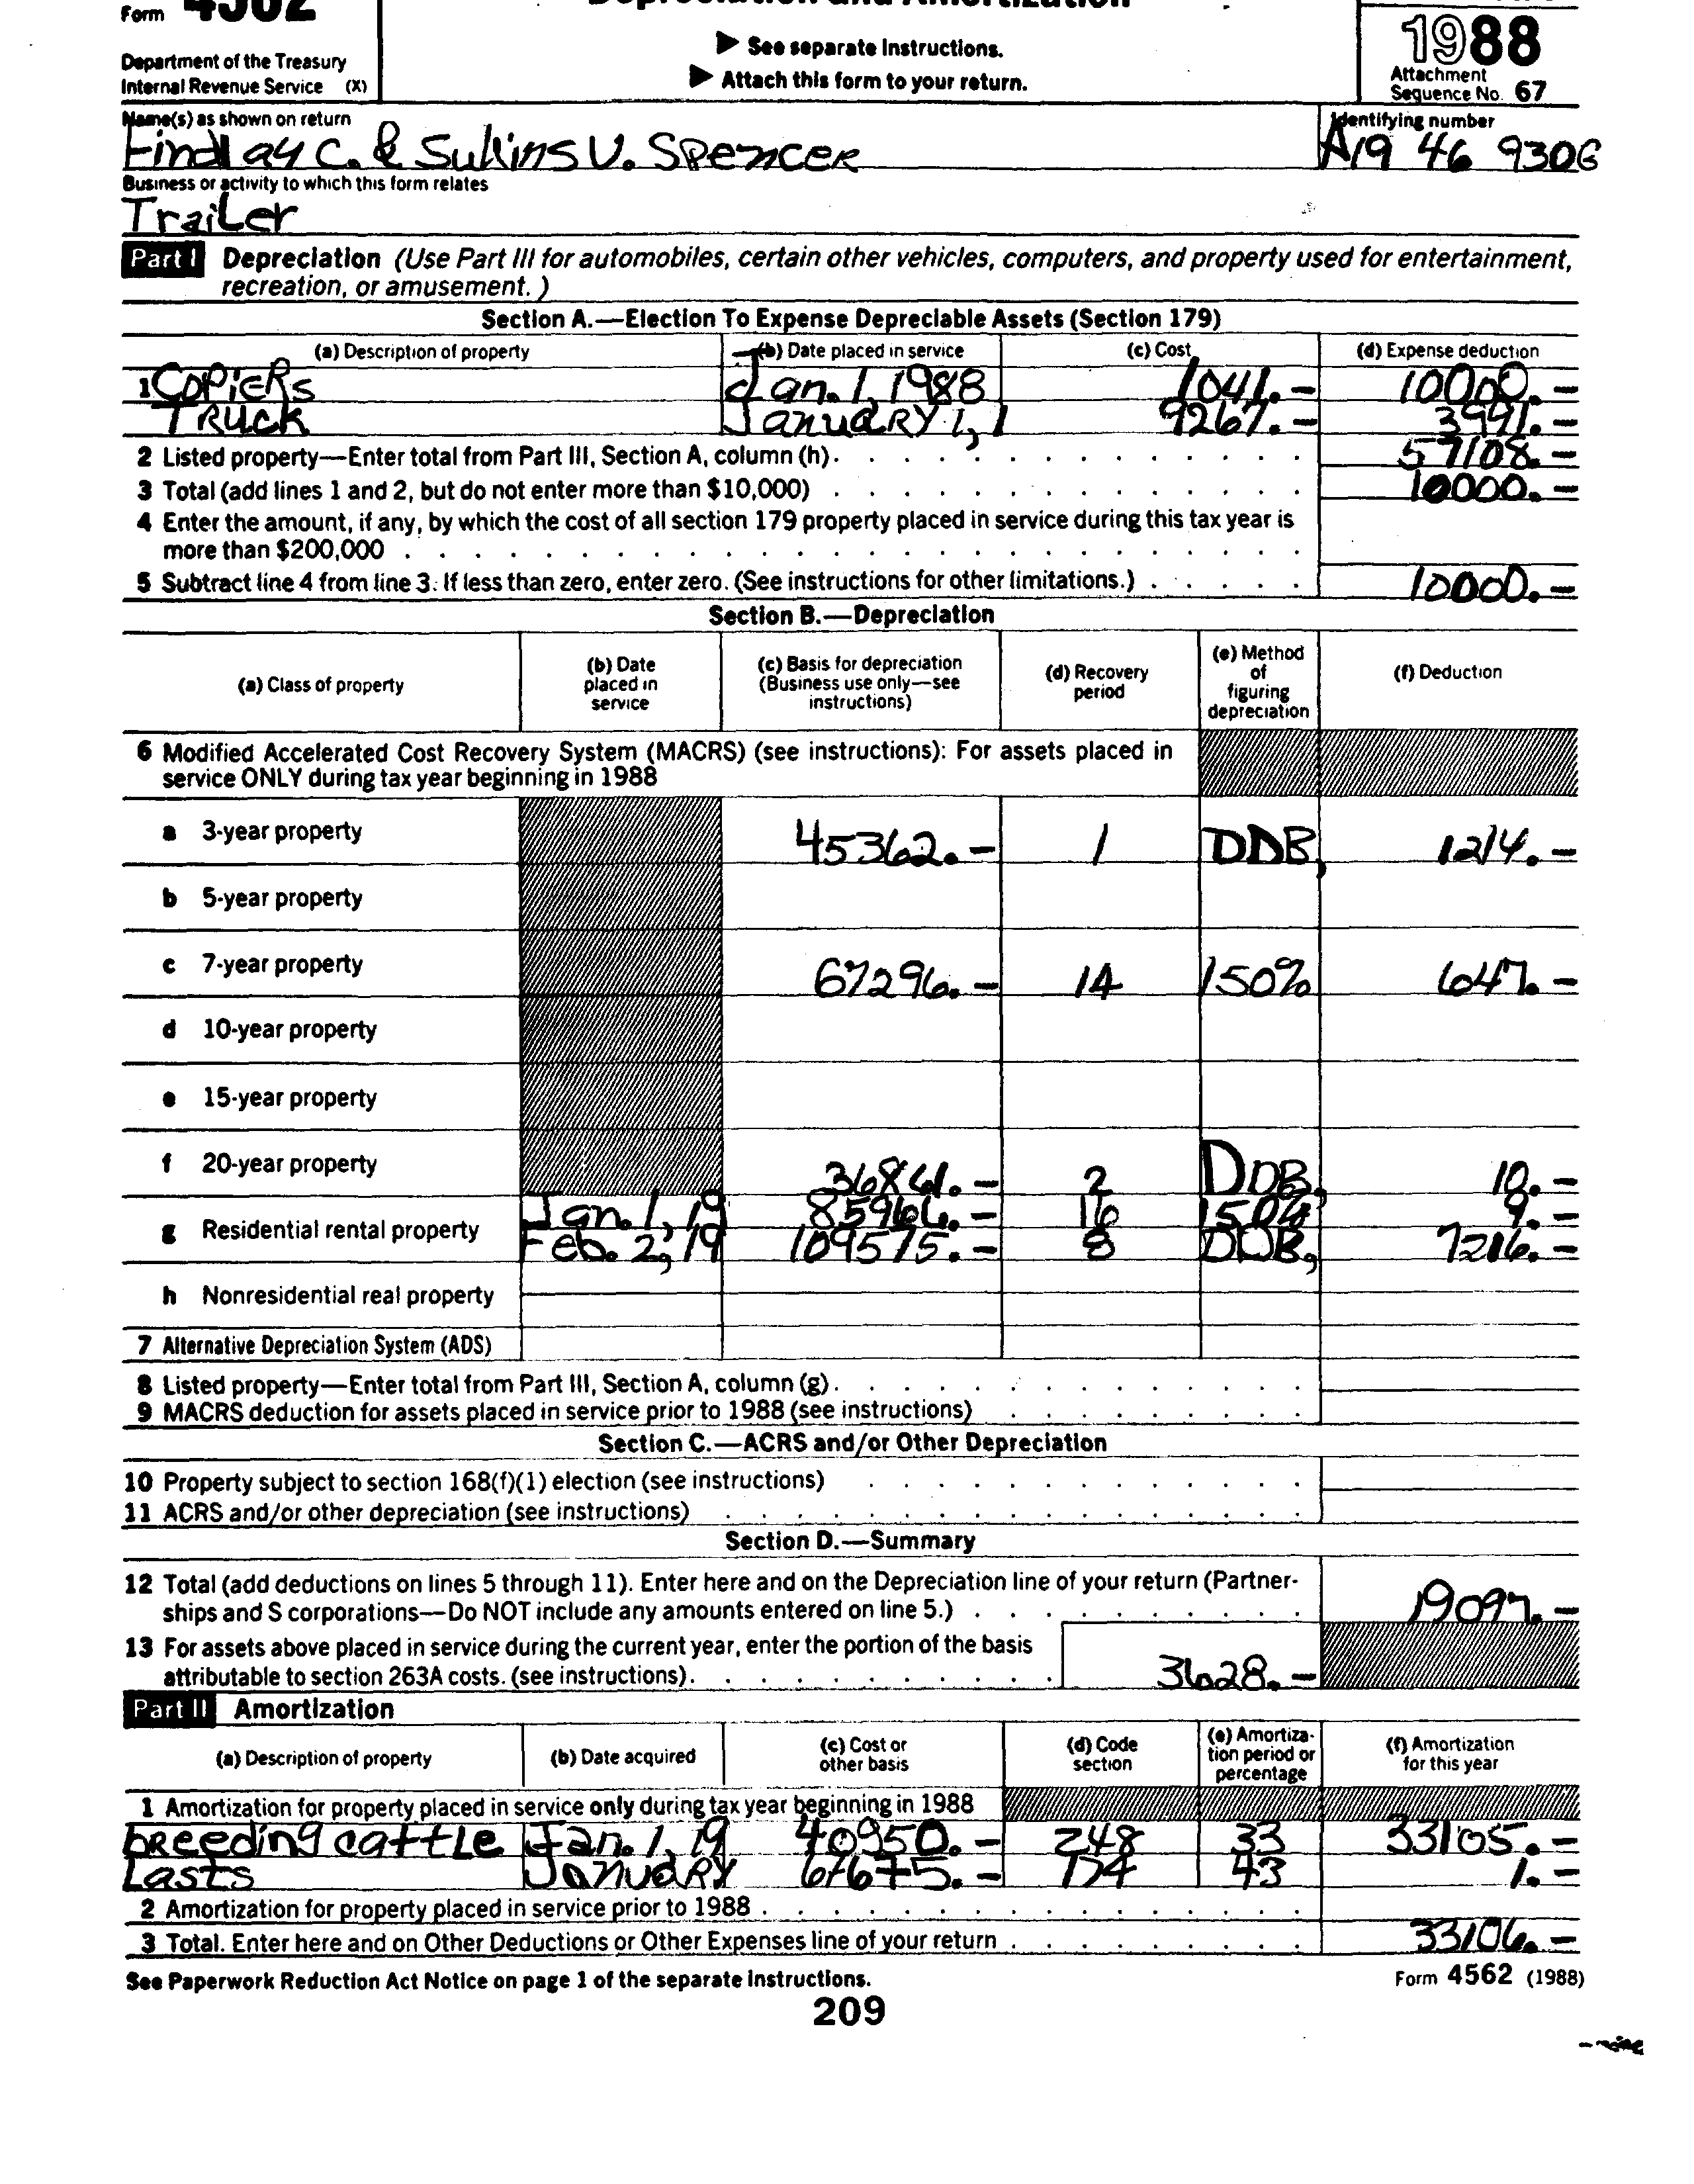 Form 4562
▶ See separate Instructions.
1988
Department of the Treasury
Internal Revenue Service (X)
▶ Attach this form to your return.
Attachment
Sequence No. 67
Name(s) as shown on return
Identifying number
Findlay C. & Sullins V. Spencer
A19 46 9306
Business or activity to which this form relates
Trailer
Part I Depreciation (Use Part III for automobiles, certain other vehicles, computers, and property used for entertainment,
recreation, or amusement. )
Section A.—Election To Expense Depreciable Assets (Section 179)
(a) Description of property (b) Date placed in service (c) Cost (d) Expense deduction
1 Copiers Jan. 1, 1988 1041.- 10000.-
Truck January 1, 1 9267.- 3991.-
2 Listed property—Enter total from Part III, Section A, column (h). 57108.-
3 Total (add lines 1 and 2, but do not enter more than $10,000) 10000.-
4 Enter the amount, if any, by which the cost of all section 179 property placed in service during this tax year is
more than $200,000
5 Subtract line 4 from line 3. If less than zero, enter zero. (See instructions for other limitations.) 10000.-
Section B.—Depreciation
(a) Class of property (b) Date placed in service (c) Basis for depreciation (Business use only—see instructions) (d) Recovery period (e) Method of figuring depreciation (f) Deduction
6 Modified Accelerated Cost Recovery System (MACRS) (see instructions): For assets placed in
service ONLY during tax year beginning in 1988
a 3-year property 45362.- 1 DDB, 1214.-
b 5-year property
c 7-year property 67296.- 14 150% 647.-
d 10-year property
e 15-year property
f 20-year property 36861.- 2 DDB, 10.-
Jan. 1, 19 85966.- 16 150% 9.-
g Residential rental property Feb. 2, 19 109575.- 8 DDB, 7216.-
h Nonresidential real property
7 Alternative Depreciation System (ADS)
8 Listed property—Enter total from Part III, Section A, column (g).
9 MACRS deduction for assets placed in service prior to 1988 (see instructions)
Section C.—ACRS and/or Other Depreciation
10 Property subject to section 168(f)(1) election (see instructions)
11 ACRS and/or other depreciation (see instructions)
Section D.—Summary
12 Total (add deductions on lines 5 through 11). Enter here and on the Depreciation line of your return (Partner-
ships and S corporations—Do NOT include any amounts entered on line 5.) 19097.-
13 For assets above placed in service during the current year, enter the portion of the basis
attributable to section 263A costs. (see instructions). 3628.-
Part II Amortization
(a) Description of property (b) Date acquired (c) Cost or other basis (d) Code section (e) Amortiza-tion period or percentage (f) Amortization for this year
1 Amortization for property placed in service only during tax year beginning in 1988
breeding cattle Jan. 1, 19 40950.- 248 33 33105.-
Lasts January 67675.- 174 43 1.-
2 Amortization for property placed in service prior to 1988
3 Total. Enter here and on Other Deductions or Other Expenses line of your return 33106.-
See Paperwork Reduction Act Notice on page 1 of the separate Instructions.
Form 4562 (1988)
209